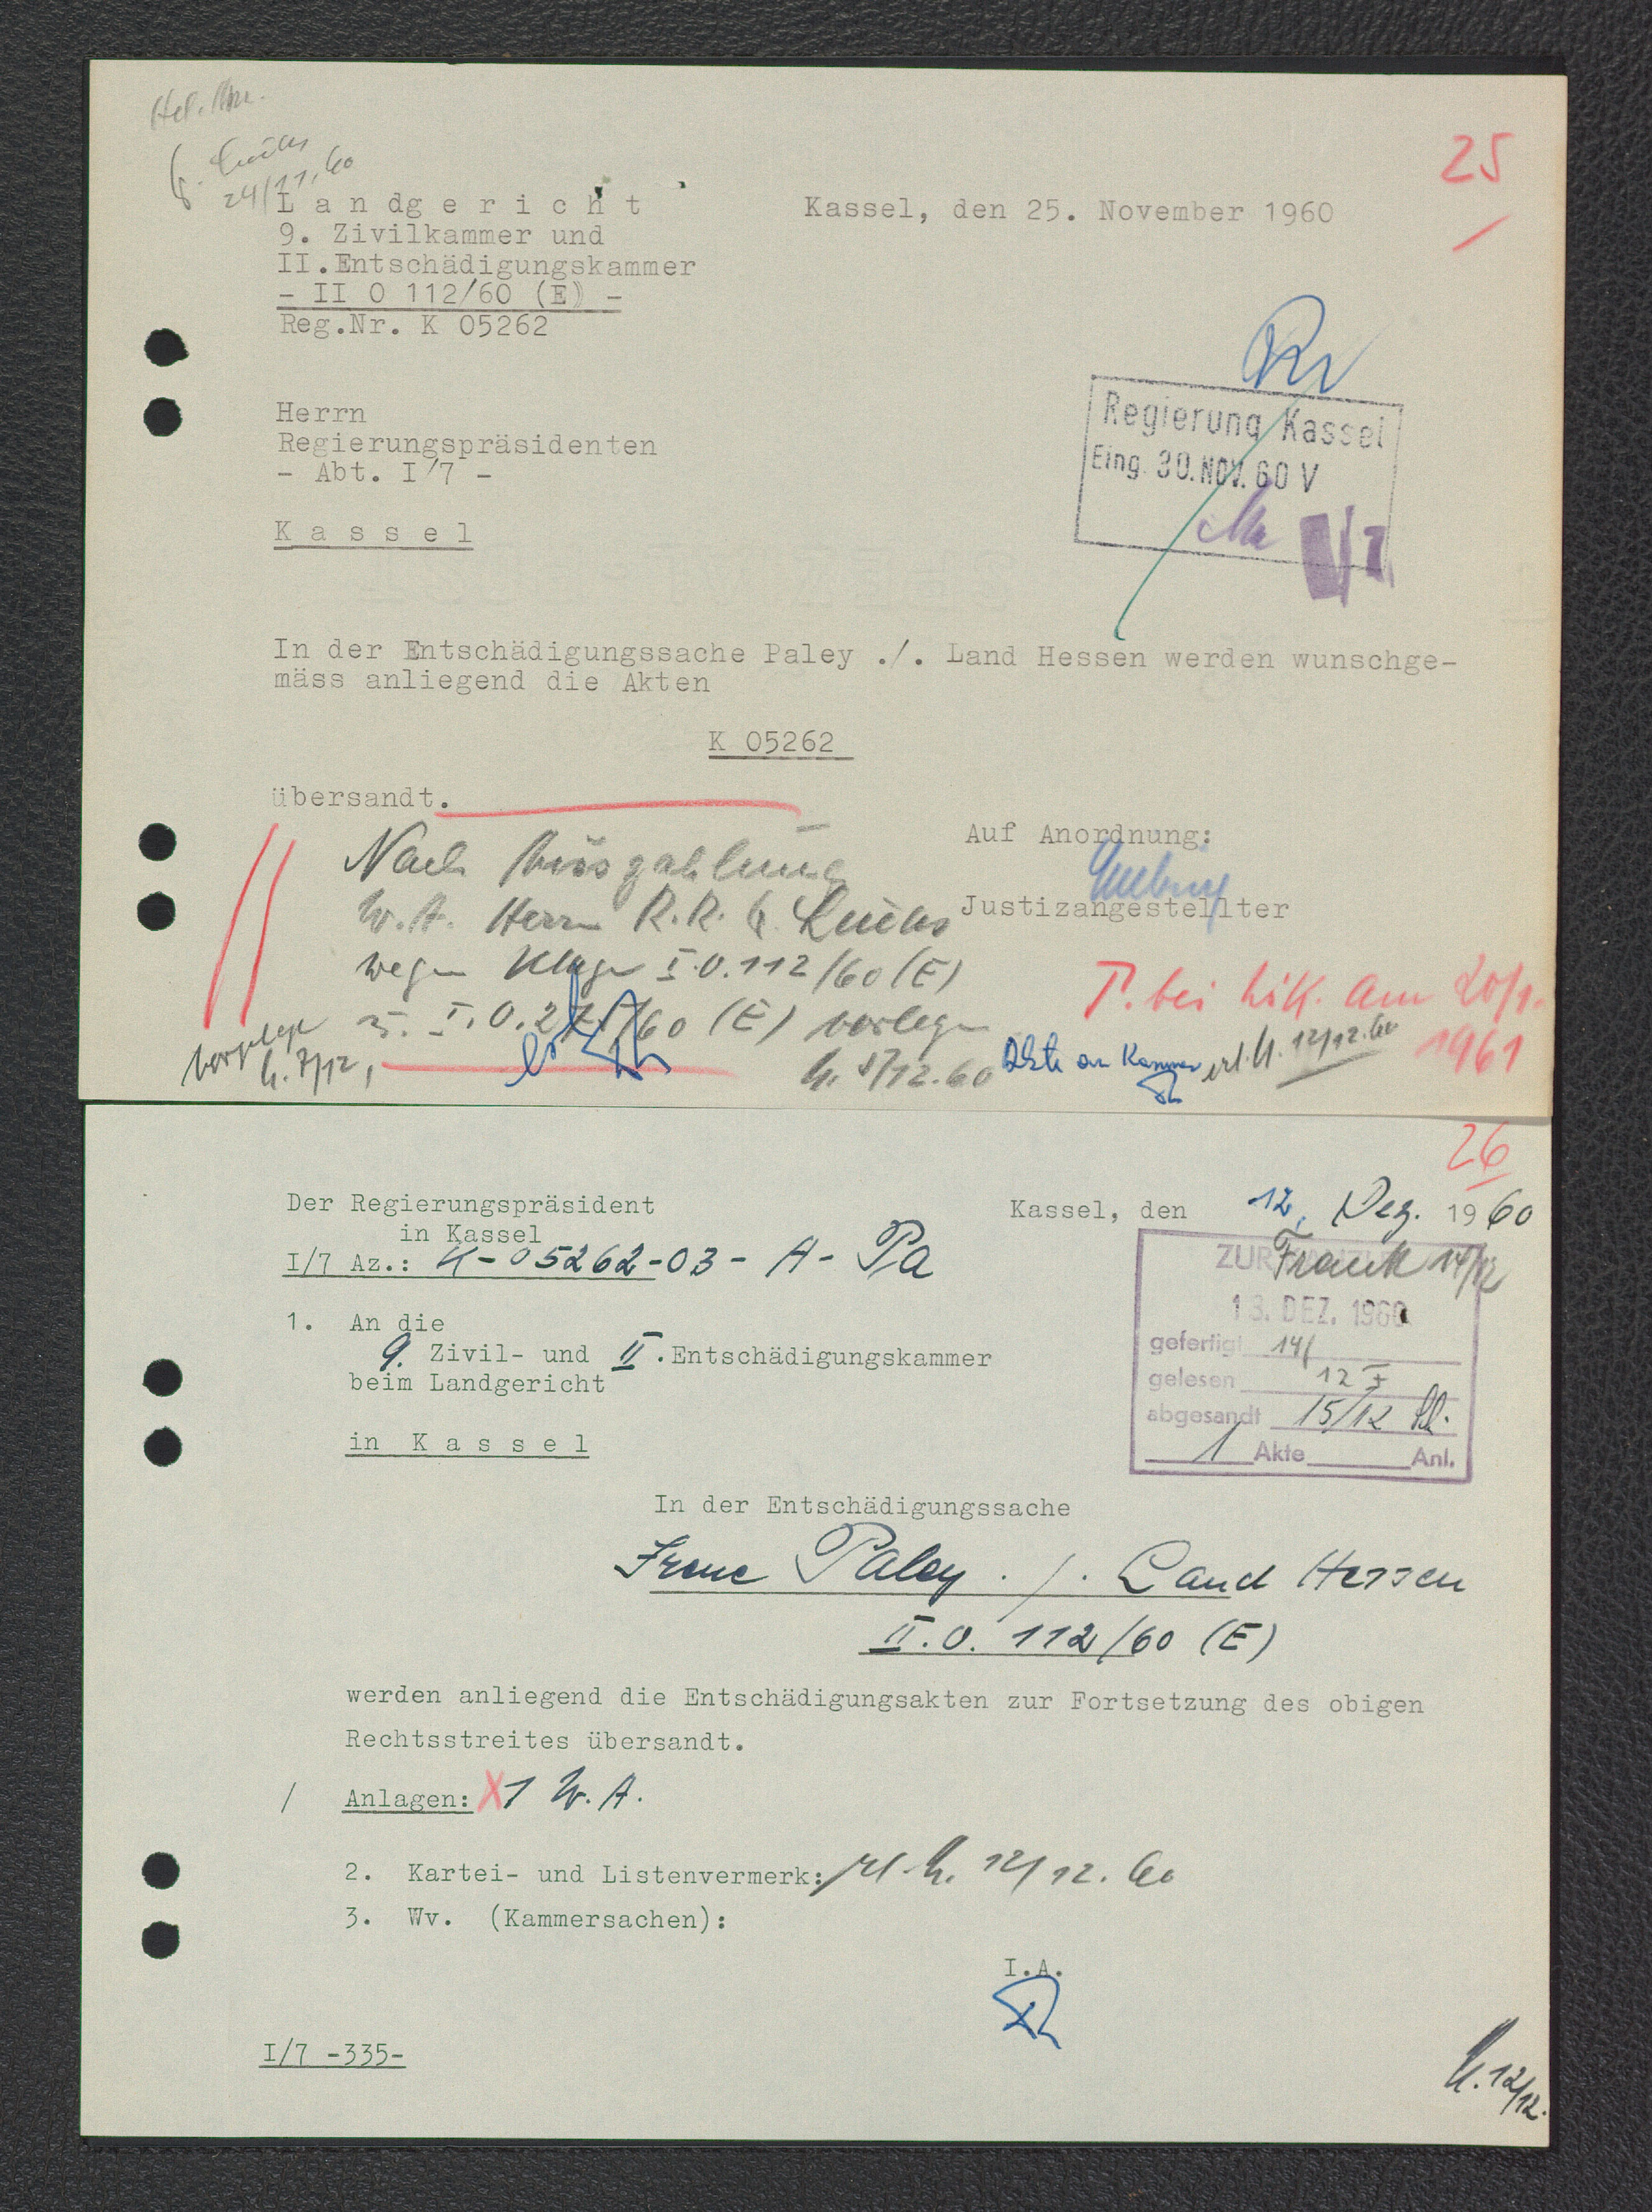 24/11.60
25
Landgericht
Kassel, den 25. November 1960
9. Zivilkammer und
II.Entschädigungskammer
- II O 112/60 (E) -
Reg.Nr. K 05262
Herrn
Regierungspräsidenten
- Abt. I/7 -
Kassel
Regierung Kassel
Eing. 30. NOV. 60 V
I/7
In der Entschädigungssache Paley ./. Land Hessen werden wunschge-
mäss anliegend die Akten
K 05262
übersandt.
Auf Anordnung:
Justizangestellter
Nach Auszahlung
W.A. Herrn R.R.
wegen Klage I.O.112/60 (E)
vorlegen
vorgelegt
7/12,
12.60
Akte an Kammer
erl. 12/12.60
T. bei am
1961
26
Der Regierungspräsident
in Kassel
I/7 Az.: K-05262-03- A- Pa
Kassel, den 12. Dez. 1960
ZUR
Frank 14/12
13. DEZ. 1960
gefertigt 14/
gelesen 12
abgesandt 15/12
1 Akte Anl.
1. An die
9. Zivil- und II.Entschädigungskammer
beim Landgericht
in Kassel
In der Entschädigungssache
Irene Paley ./. Land Hessen
II.O. 112/60 (E)
werden anliegend die Entschädigungsakten zur Fortsetzung des obigen
Rechtsstreites übersandt.
/ Anlagen: X 1 W.A.
2. Kartei- und Listenvermerk: erl. 12/12.60
3. Wv. (Kammersachen):
I.A.
I/7 -335-
12/12.